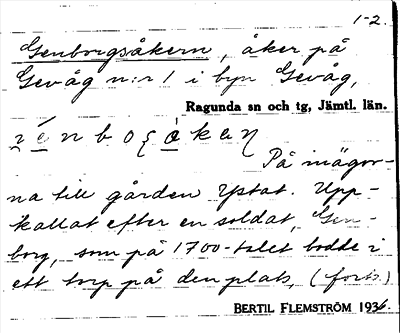 1-2.
Genborgsåkern, åker på
Gevåg n:r 1 i byn Gevåg,
Ragunda sn och tg, Jämtl. län.
På mägor-
na till gården Ystat. Upp-
kallat efter en soldat, Gen-
borg, som på 1700-talet bodde i
ett torp på den plats, (forts.)
BERTIL FLEMSTRÖM 1936.